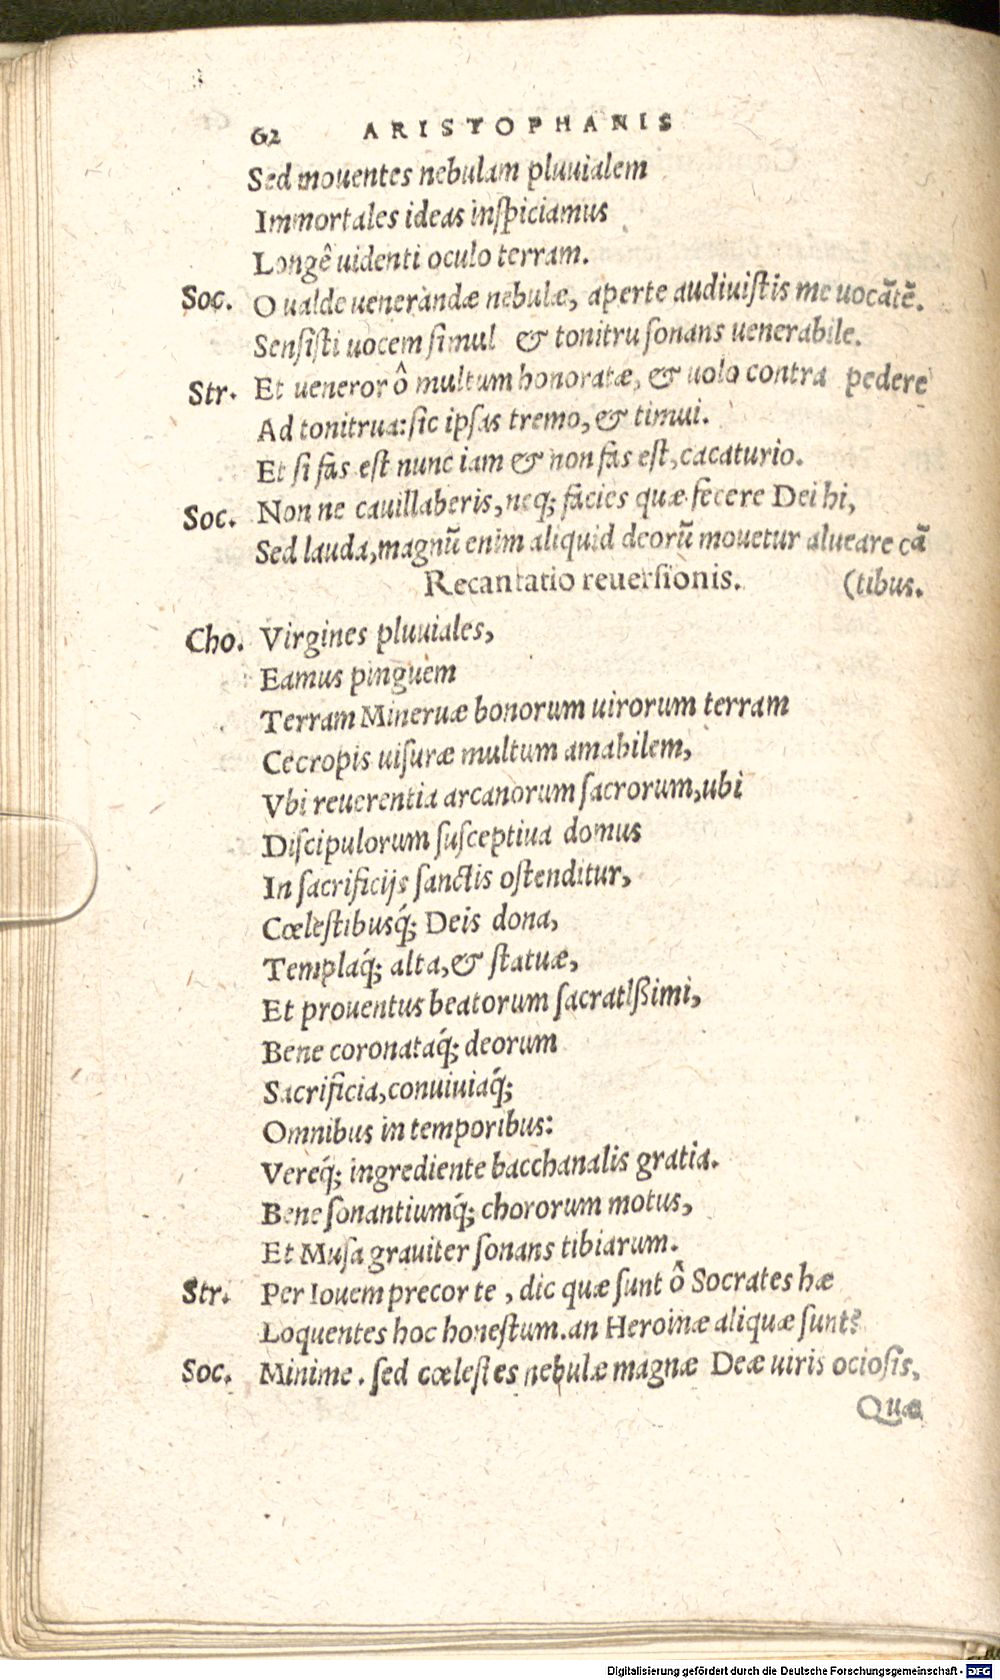 62 ARISTOPHANIS
Sed mouentes nebulam pluuialem
Immortales ideas inſpiciamus
Longê uidenti oculo terram.
Soc. O ualde uenerandæ nebulæ, aperte audiuiſtis me uocãtẽ.
Senſiſti uocem ſimul & tonitru ſonans uenerabile.
Str. Et ueneror ô multum honoratæ, & uolo contra pedere
Ad tonitrua: ſic ipſas tremo, & timui.
Et ſi fas eſt nunc iam & non fas eſt, cacaturio.
Soc. Non ne cauillaberis, neq; facies quæ fecere Dei hi,
Sed lauda, magnũ enim aliquid deorũ mouetur alueare cã
Recantatio reuerſionis. (tibus.
Cho. Virgines pluuiales,
Eamus pinguem
Terram Mineruæ bonorum uirorum terram
Cecropis uiſuræ multum amabilem,
Vbi reuerentia arcanorum ſacrorum, ubi
Diſcipulorum ſuſceptiua domus
In ſacrificijs ſanctis oſtenditur,
Cœleſtibusq́; Deis dona,
Templaq́; alta, & ſtatuæ,
Et prouentus beatorum ſacratIßimi,
Bene coronataq́; deorum
Sacrificia, conuiuiaq́;
Omnibus in temporibus:
Vereq́; ingrediente bacchanalis gratia.
Bene ſonantiumq́; chororum motus,
Et Muſa grauiter ſonans tibiarum.
Str. Per Iouem precor te, dic quæ ſunt ô Socrates hæ
Loquentes hoc honeſtum. an Heroinæ aliquæ ſunt?
Soc. Minime. ſed cœleſtes nebulæ magnæ Deæ uiris ocioſis,
Quæ
Digitalisierung gefördert durch die Deutsche Forschungsgemeinschaft - DFG